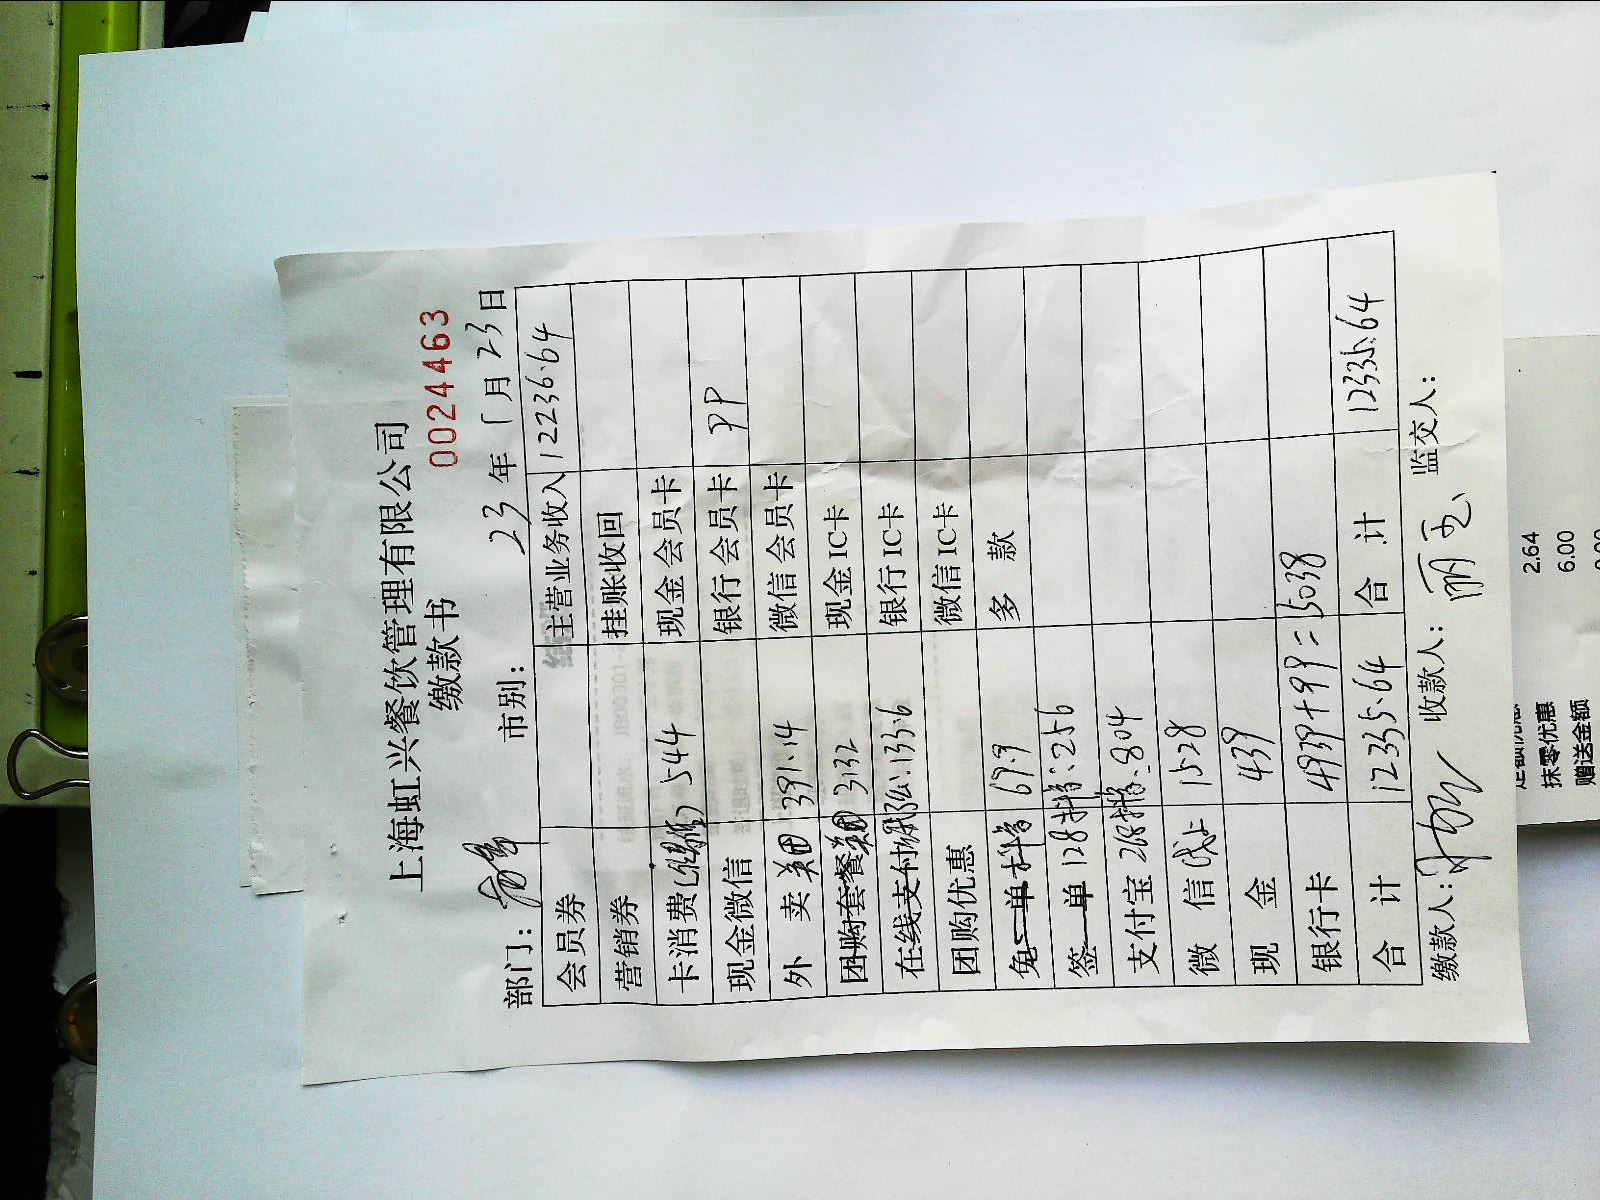 上海虹兴餐饮管理有限公司
缴款书 0024463
部门： 市别： 23年1月23日
会员券 主营业务收入 12236.64
营销券 挂账收回
卡消费 544 现金会员卡
现金微信 银行会员卡 99
外 卖 美团 391.14 微信会员卡
团购套餐 美团 3132 现金IC卡
在线支付 133.6 银行IC卡
团购优惠 微信IC卡
免 单 抖音 69.9 多 款
签 单 128抖音:256
支付宝 268抖音:804
微 信 线上 1528
现 金 439
银行卡 4939+99=5038
合 计 12335.64 合 计 12335.64
缴款人： 收款人： 监交人：
2.64
抹零优惠 6.00
赠送金额